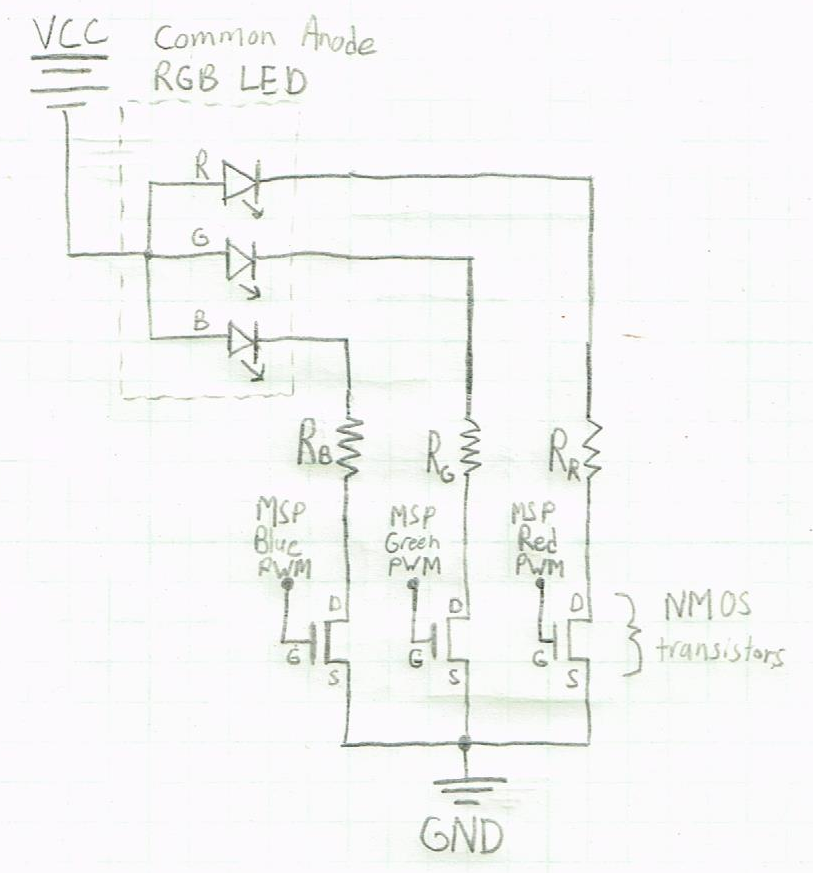 VCC
Common Anode
RGB LED
R
G
B
RB
RG
RR
MSP
Blue
PWM
MSP
Green
PWM
MSP
Red
PWM
D
G
S
D
G
S
D
G
S
NMOS
transistors
GND